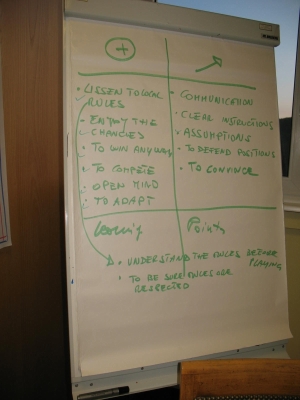 +
• LISSEN TO LOCAL
RULES
• ENJOY THE
CHANGES
• TO WIN ANYWAY
• TO COMPETE
• OPEN MIND
• TO ADAPT
• COMMUNICATION
• CLEAR INSTRUCTIONS
• ASSUMPTIONS
• TO DEFEND POSITIONS
• TO CONVINCE
Learning Points
• UNDERSTAND THE RULES BEFORE
PLAYING
• TO BE SURE RULES ARE
RESPECTED